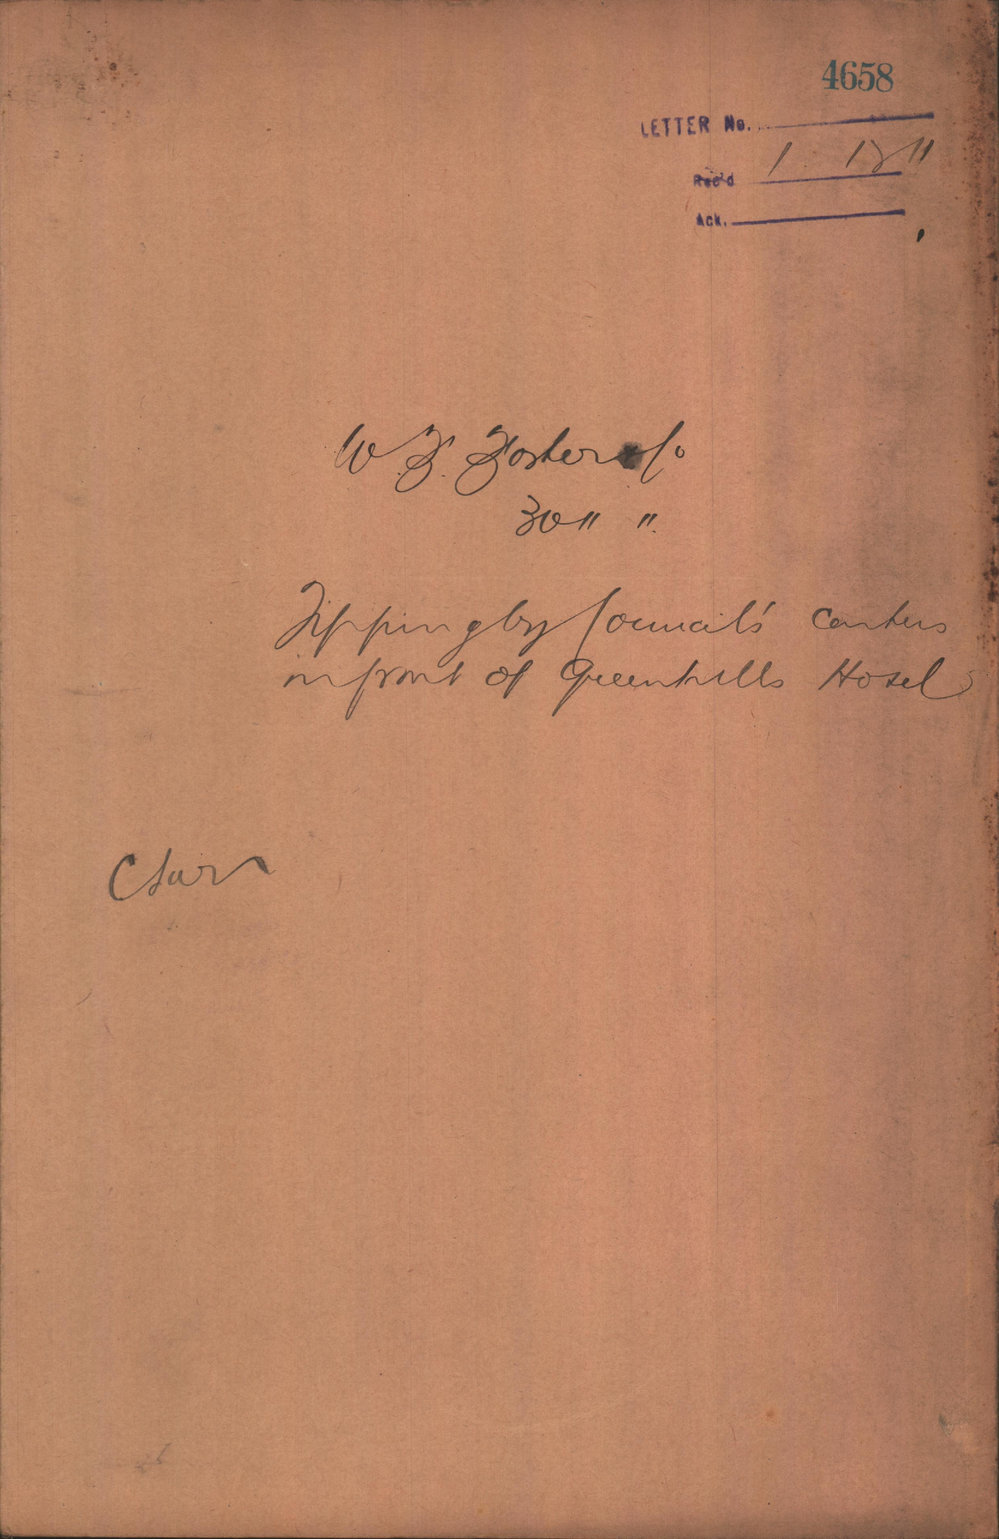 4658
LETTER No.
Rec'd 1
Ack.
W. F. Foster & Co
30 " "
Tipping by Council's Carters
in front of Greenhills Hotel